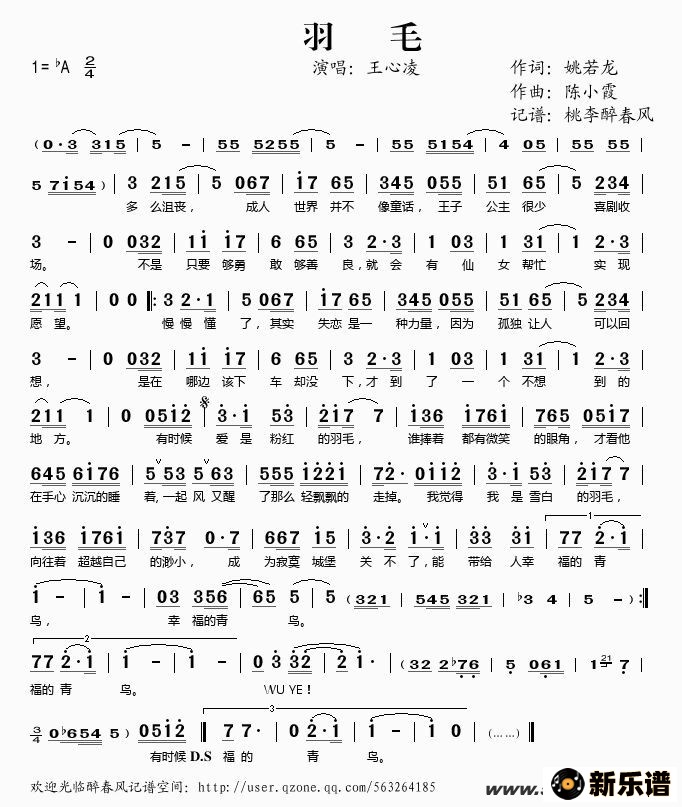 羽 毛
1=♭A 2/4 演唱：王心凌 作词：姚若龙
作曲：陈小霞
记谱：桃李醉春风
(0·3 315 | 5 - | 55 5255 | 5 - | 55 5154 | 4 05 | 55 55 |
5 7154) | 3 215 | 5 067 | 17 65 | 345 055 | 51 65 | 5 234 |
多 么沮丧， 成人 世界 并不 像童话，王子 公主 很少 喜剧收
3 - | 0 032 | 11 17 | 6 65 | 3 2·3 | 1 03 | 1 31 | 1 2·3 |
场。 不是 只要 够勇 敢 够善 良，就 会 有 仙 女 帮忙 实现
211 1 | 0 0 ‖: 3 2·1 | 5 067 | 17 65 | 345 055 | 51 65 | 5 234 |
愿望。 慢 慢懂 了，其实 失恋 是一 种力量，因为 孤独 让人 可以回
3 - | 0 032 | 11 17 | 6 65 | 3 2·3 | 1 03 | 1 31 | 1 2·3 |
想， 是在 哪边 该下 车 却没 下，才 到 了 一 个 不想 到的
211 1 | 0 0512 | 3·1 53 | 217 7 | 136 1761 | 765 0517 |
地方。 有时候 爱 是 粉红 的羽毛， 谁捧着 都有微笑 的眼角，才看他
645 6176 | 5 53 | 5 63 | 555 1221 | 72· 0112 | 3·1 53 | 217 7 |
在手心 沉沉的睡 着，一起 风 又醒 了那么 轻飘飘的 走掉。 我觉得 我 是 雪白 的羽毛，
136 1761 | 737 0·7 | 667 15 | 3·2 1·1 | 33 31 | 77 2·1 |
1
向往着 超越自己 的渺小， 成 为寂寞 城堡 关 不 了，能 带给 人幸 福的 青
1 - | 1 - | 03 356 | 65 5 | 5 (321 | 545 321 | ♭3 4 | 5 -) :‖
鸟， 幸 福的青 鸟。
2
77 2·1 | 1 - | 1 - | 0 3 32 | 2 1· | (32 2♭76 | 5 061 | 1 7 |
福的 青 鸟。 WU YE！
3
3/4 0♭654 5) | 0512 ‖ 77· | 0 2·1 | 1 - | 1 0 | (……) ‖
有时候 D.S 福的 青 鸟。
欢迎光临醉春风记谱空间：http://user.qzone.qq.com/563264185
www.
新乐谱